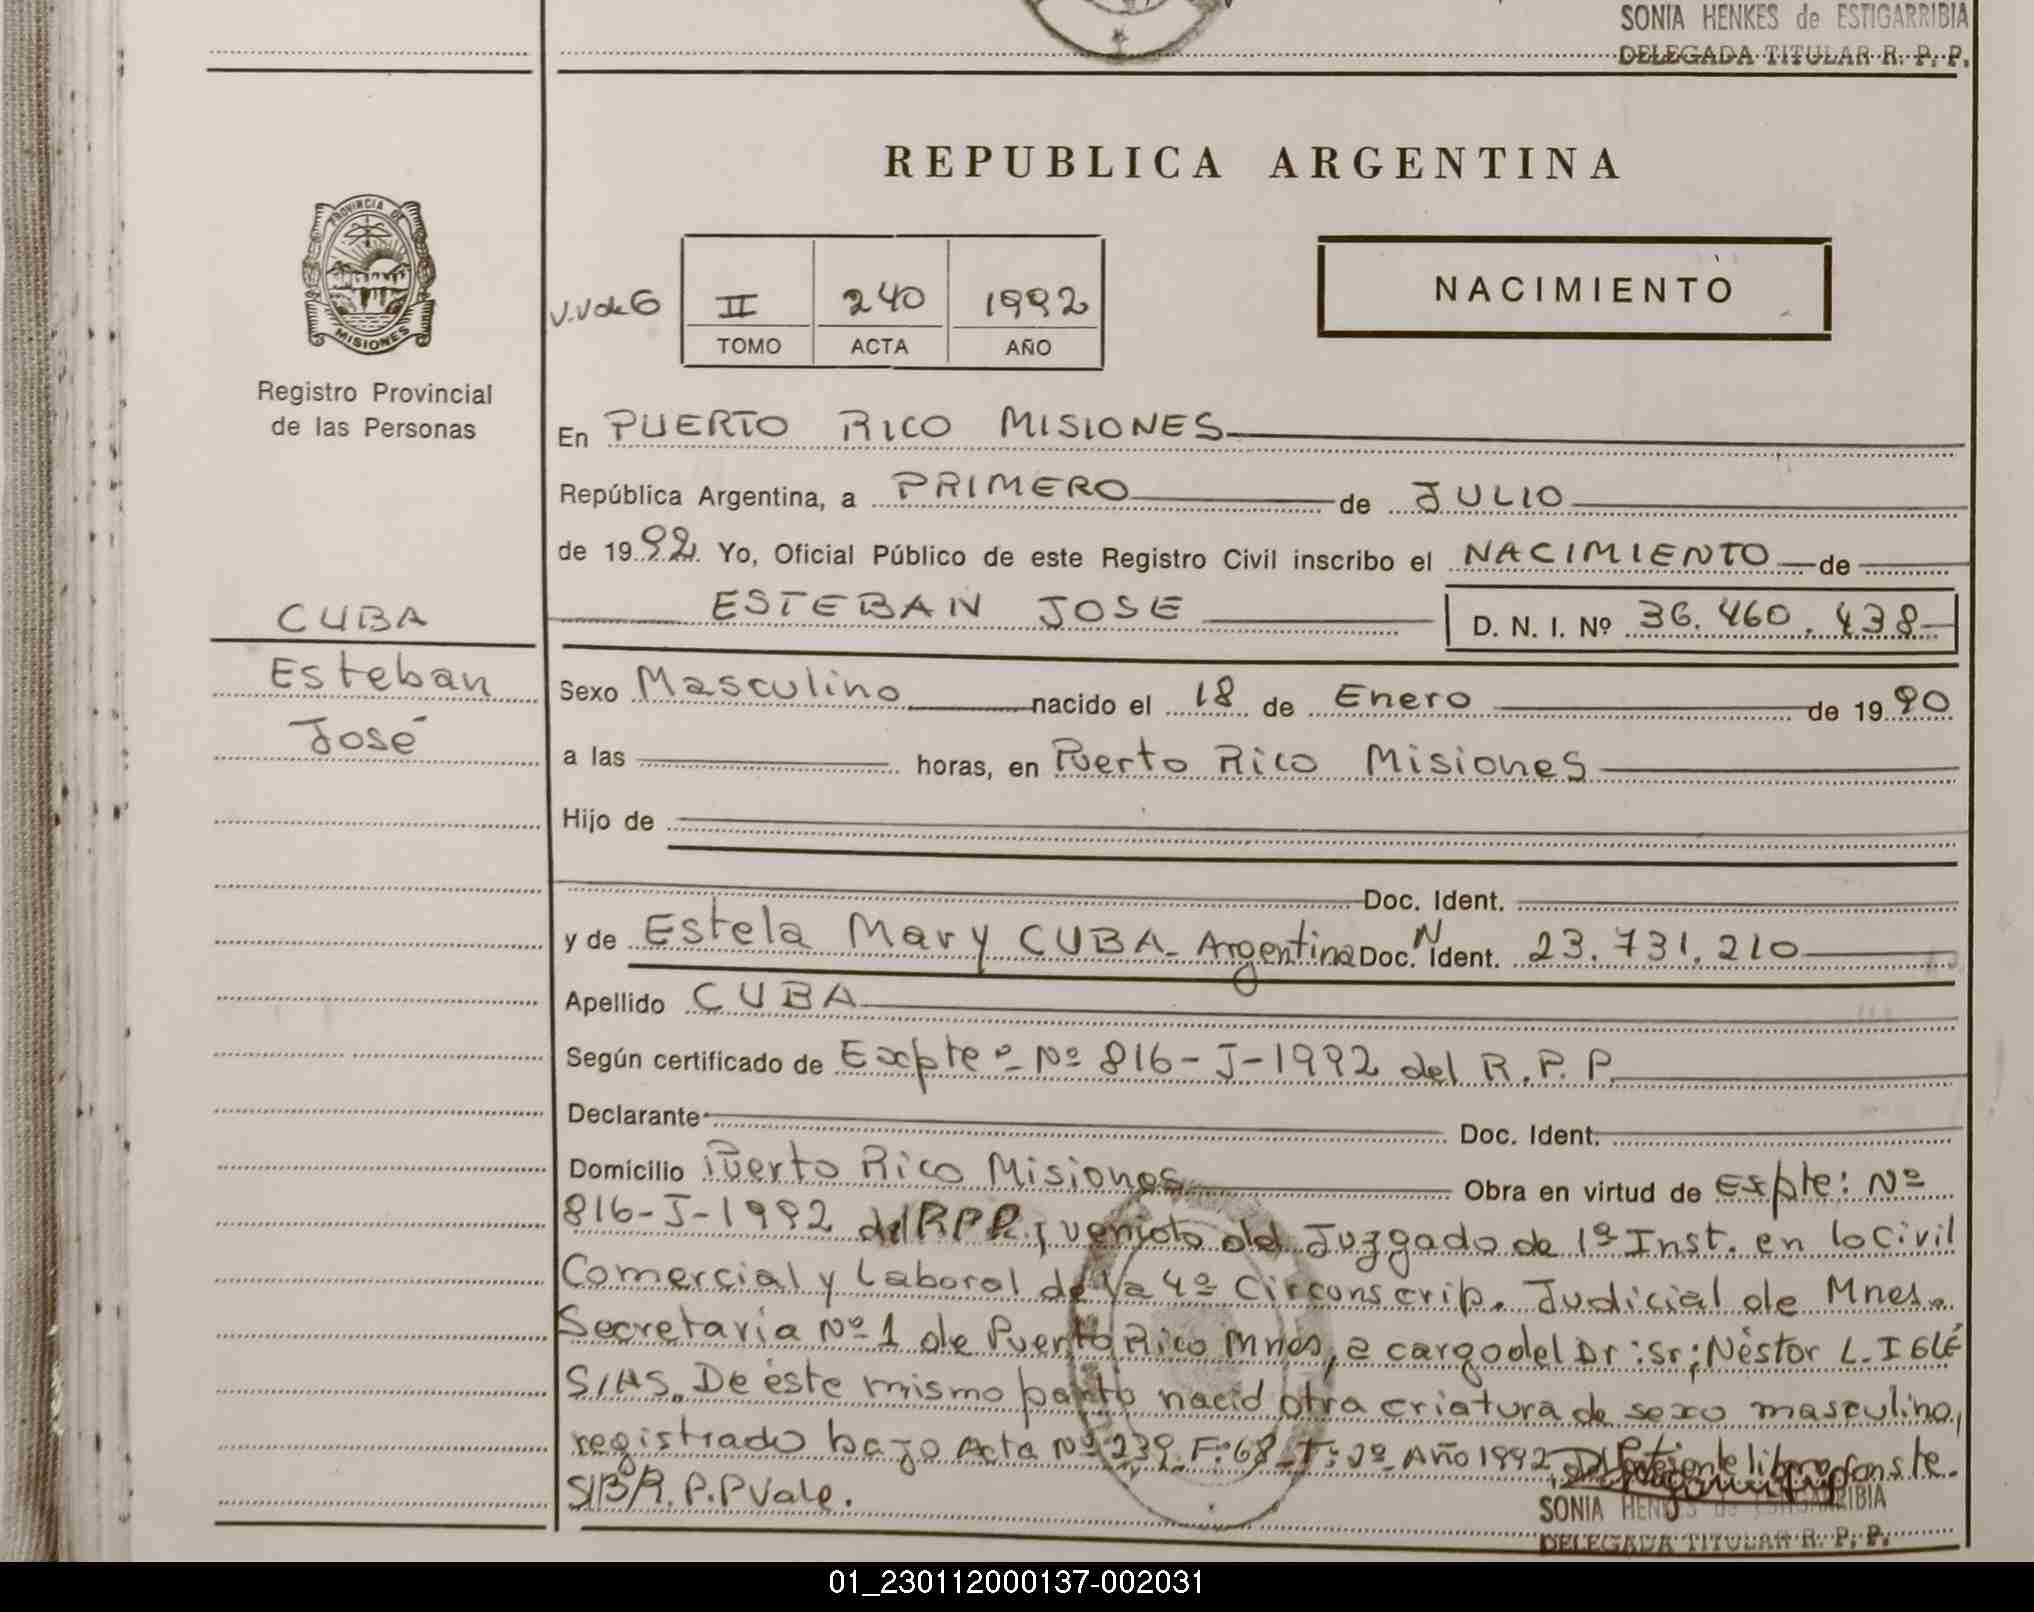 SONIA HENKES de ESTIGARRIBIA
DELEGADA TITULAR R. P. P.
REPUBLICA ARGENTINA
PROVINCIA DE
MISIONES
Registro Provincial
de las Personas
V.V de 6
II 240 1992
TOMO ACTA AÑO
NACIMIENTO
En PUERTO RICO MISIONES
República Argentina, a PRIMERO de JULIO
de 1992. Yo, Oficial Público de este Registro Civil inscribo el NACIMIENTO de
ESTEBAN JOSE D. N. I. Nº 36.460.438
CUBA
Esteban
José
Sexo Masculino nacido el 18 de Enero de 1990
a las horas, en Puerto Rico Misiones
Hijo de
Doc. Ident.
y de Estela Mary CUBA - Argentina Doc. N Ident. 23.731.210
Apellido CUBA
Según certificado de Expte º - Nº 816-J-1992 del R.P.P.
Declarante Doc. Ident.
Domicilio Puerto Rico Misiones Obra en virtud de Expte: Nº
816-J-1992 del RPP. del Juzgado de 1ª Inst. en lo Civil
Comercial y Laboral de la 4º Circonscrip. Judicial de Mnes.
Secretaría Nº 1 de Puerto Rico Mnes, a cargo del Dr: Sr: Néstor L. IGLÉ
SIAS. De éste mismo parto nació otra criatura de sexo masculino,
registrado bajo Acta Nº 239 Fº: 68 - T: 2º Año 1992 libro conste.
S/B R.P.P Vale.
SONIA HENKES de ESTIGARRIBIA
DELEGADA TITULAR R. P. P.
01_230112000137-002031